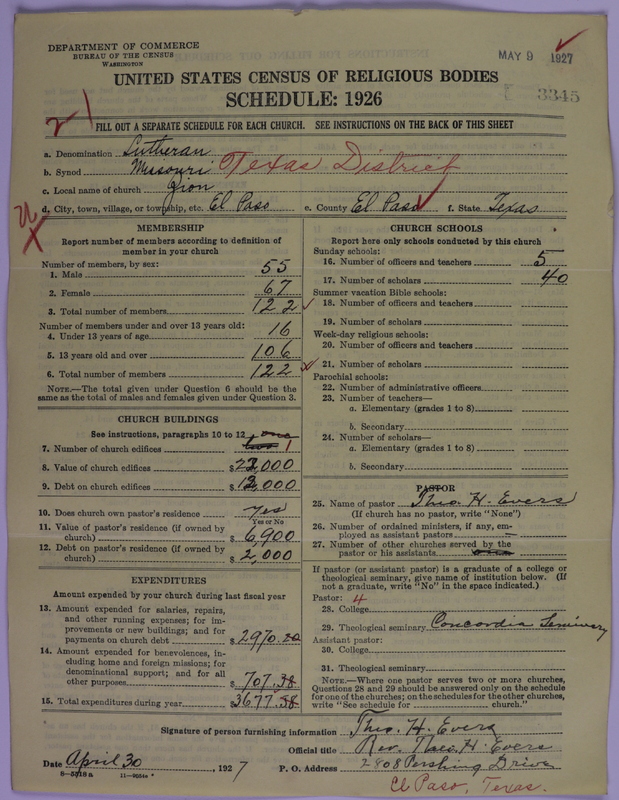 DEPARTMENT OF COMMERCE
BUREAU OF THE CENSUS
WASHINGTON
MAY 9 1927
UNITED STATES CENSUS OF RELIGIOUS BODIES
SCHEDULE: 1926
3345
FILL OUT A SEPARATE SCHEDULE FOR EACH CHURCH. SEE INSTRUCTIONS ON THE BACK OF THIS SHEET
a. Denomination Lutheran
b. Synod Missouri Texas District
c. Local name of church Zion
d. City, town, village, or township, etc. El Paso e. County El Paso f. State Texas
MEMBERSHIP
Report number of members according to definition of
member in your church
Number of members, by sex:
1. Male 55
2. Female 67
3. Total number of members 122
Number of members under and over 13 years old:
4. Under 13 years of age 16
5. 13 years old and over 106
6. Total number of members 122
NOTE.—The total given under Question 6 should be the
same as the total of males and females given under Question 3.
CHURCH BUILDINGS
See instructions, paragraphs 10 to 12 one
7. Number of church edifices two 1
8. Value of church edifices $22,000
9. Debt on church edifices $12,000
10. Does church own pastor's residence yes
Yes or No
11. Value of pastor's residence (if owned by
church) $6,900
12. Debt on pastor's residence (if owned by
church) $2,000
EXPENDITURES
Amount expended by your church during last fiscal year
13. Amount expended for salaries, repairs,
and other running expenses; for im-
provements or new buildings; and for
payments on church debt $2970.20
14. Amount expended for benevolences, in-
cluding home and foreign missions; for
denominational support; and for all
other purposes $707.38
15. Total expenditures during year $3677.58
CHURCH SCHOOLS
Report here only schools conducted by this church
Sunday schools:
16. Number of officers and teachers 5
17. Number of scholars 40
Summer vacation Bible schools:
18. Number of officers and teachers
19. Number of scholars
Week-day religious schools:
20. Number of officers and teachers
21. Number of scholars
Parochial schools:
22. Number of administrative officers
23. Number of teachers—
a. Elementary (grades 1 to 8)
b. Secondary
24. Number of scholars—
a. Elementary (grades 1 to 8)
b. Secondary
PASTOR
25. Name of pastor Theo. H. Evers
(If church has no pastor, write "None")
26. Number of ordained ministers, if any, em-
ployed as assistant pastors
27. Number of other churches served by the
pastor or his assistants
If pastor (or assistant pastor) is a graduate of a college or
theological seminary, give name of institution below. (If
not a graduate, write "No" in the space indicated.)
Pastor: 4
28. College
29. Theological seminary Concordia Seminary
Assistant pastor:
30. College
31. Theological seminary
NOTE.—Where one pastor serves two or more churches,
Questions 28 and 29 should be answered only on the schedule
for one of the churches; on the schedules for the other churches,
write "See schedule for church."
Signature of person furnishing information Theo. H. Evers
Official title Rev. Theo. H. Evers
Date April 30, 1927 P. O. Address 2808 Pershing Drive
8—5518a
El Paso, Texas.